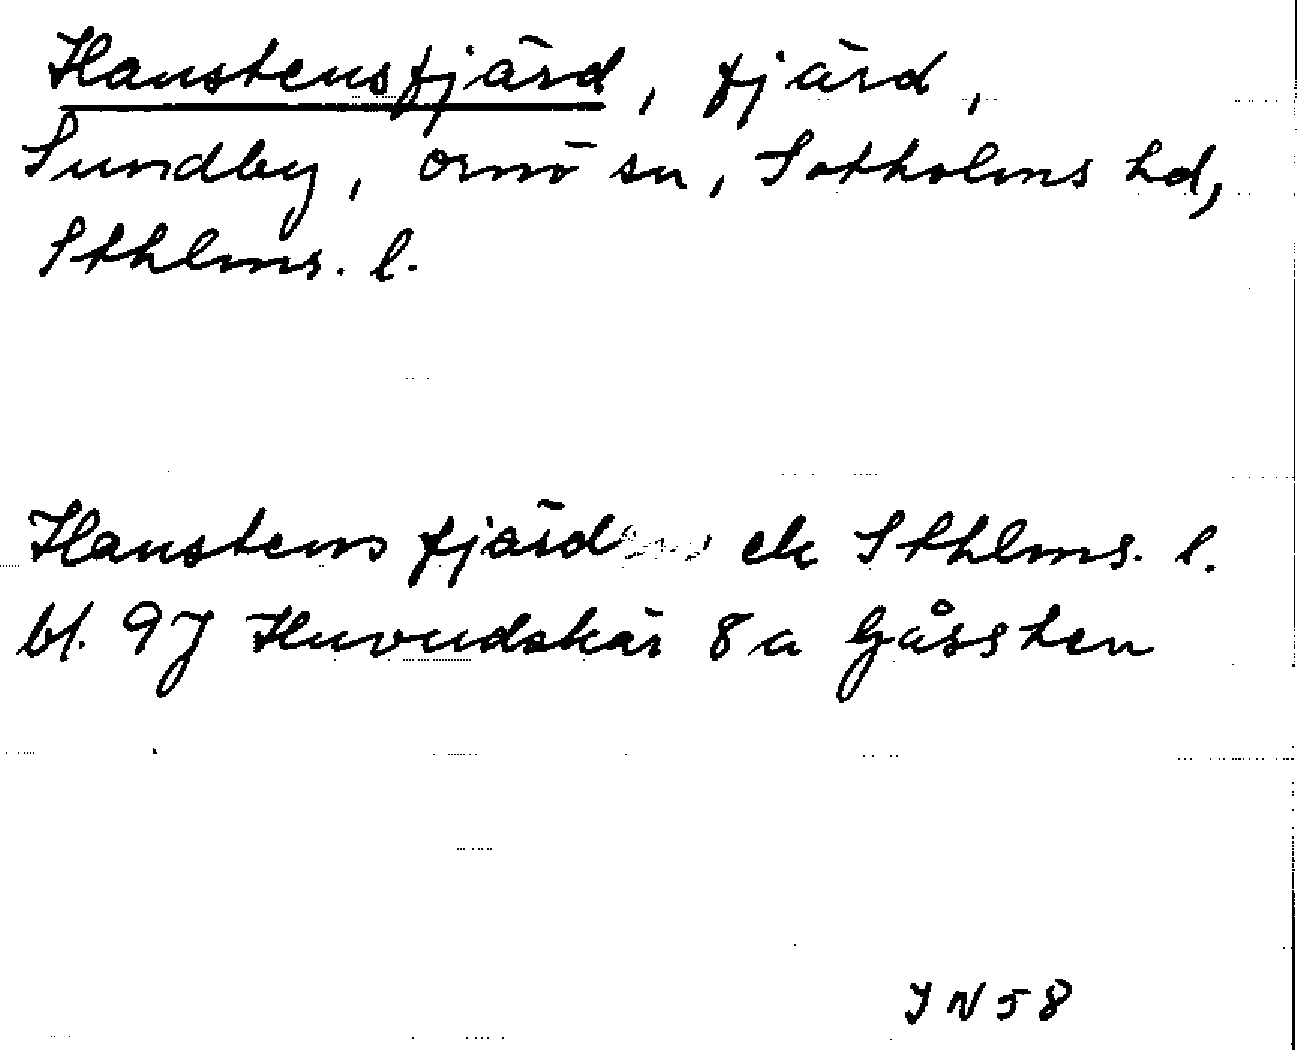 Hanstensfjärd, fjärd,
Sundby, Ornö sn, Sotholms hd,
Sthlms. l.
Hanstens fjärd ek Sthlms. l.
bl. 9J Huvudskär 8a Gåssten
JN58